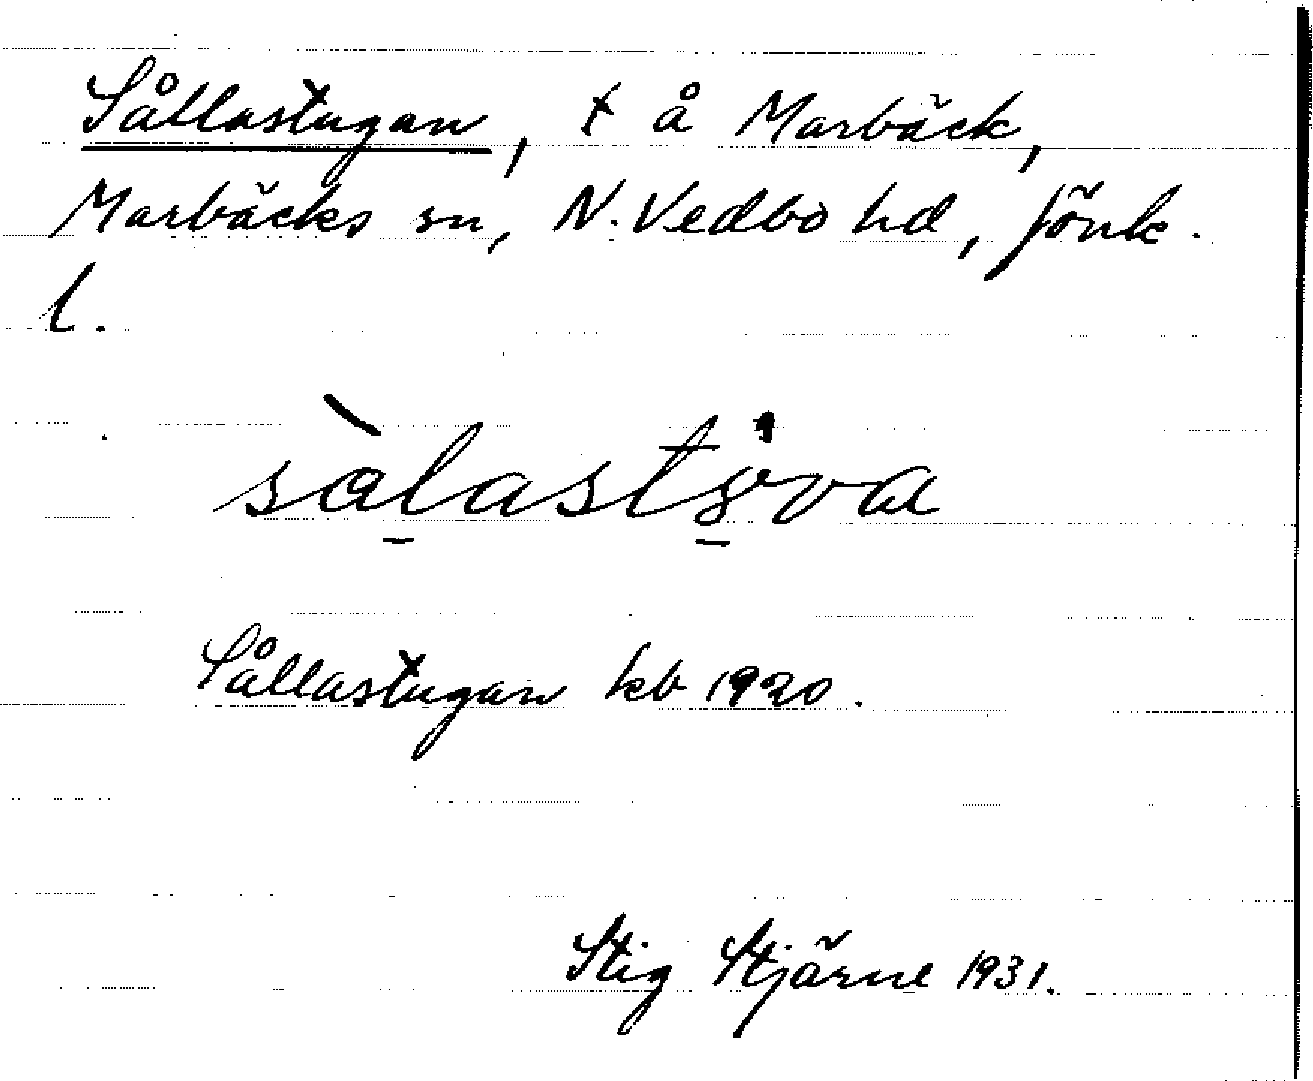 Sållastugan, t å Marbäck,
Marbäcks sn, N. Vedbo hd, Jönk.
l.
sàlastöva
Sållastugan kb 1920.
Stig Stjärne 1931.